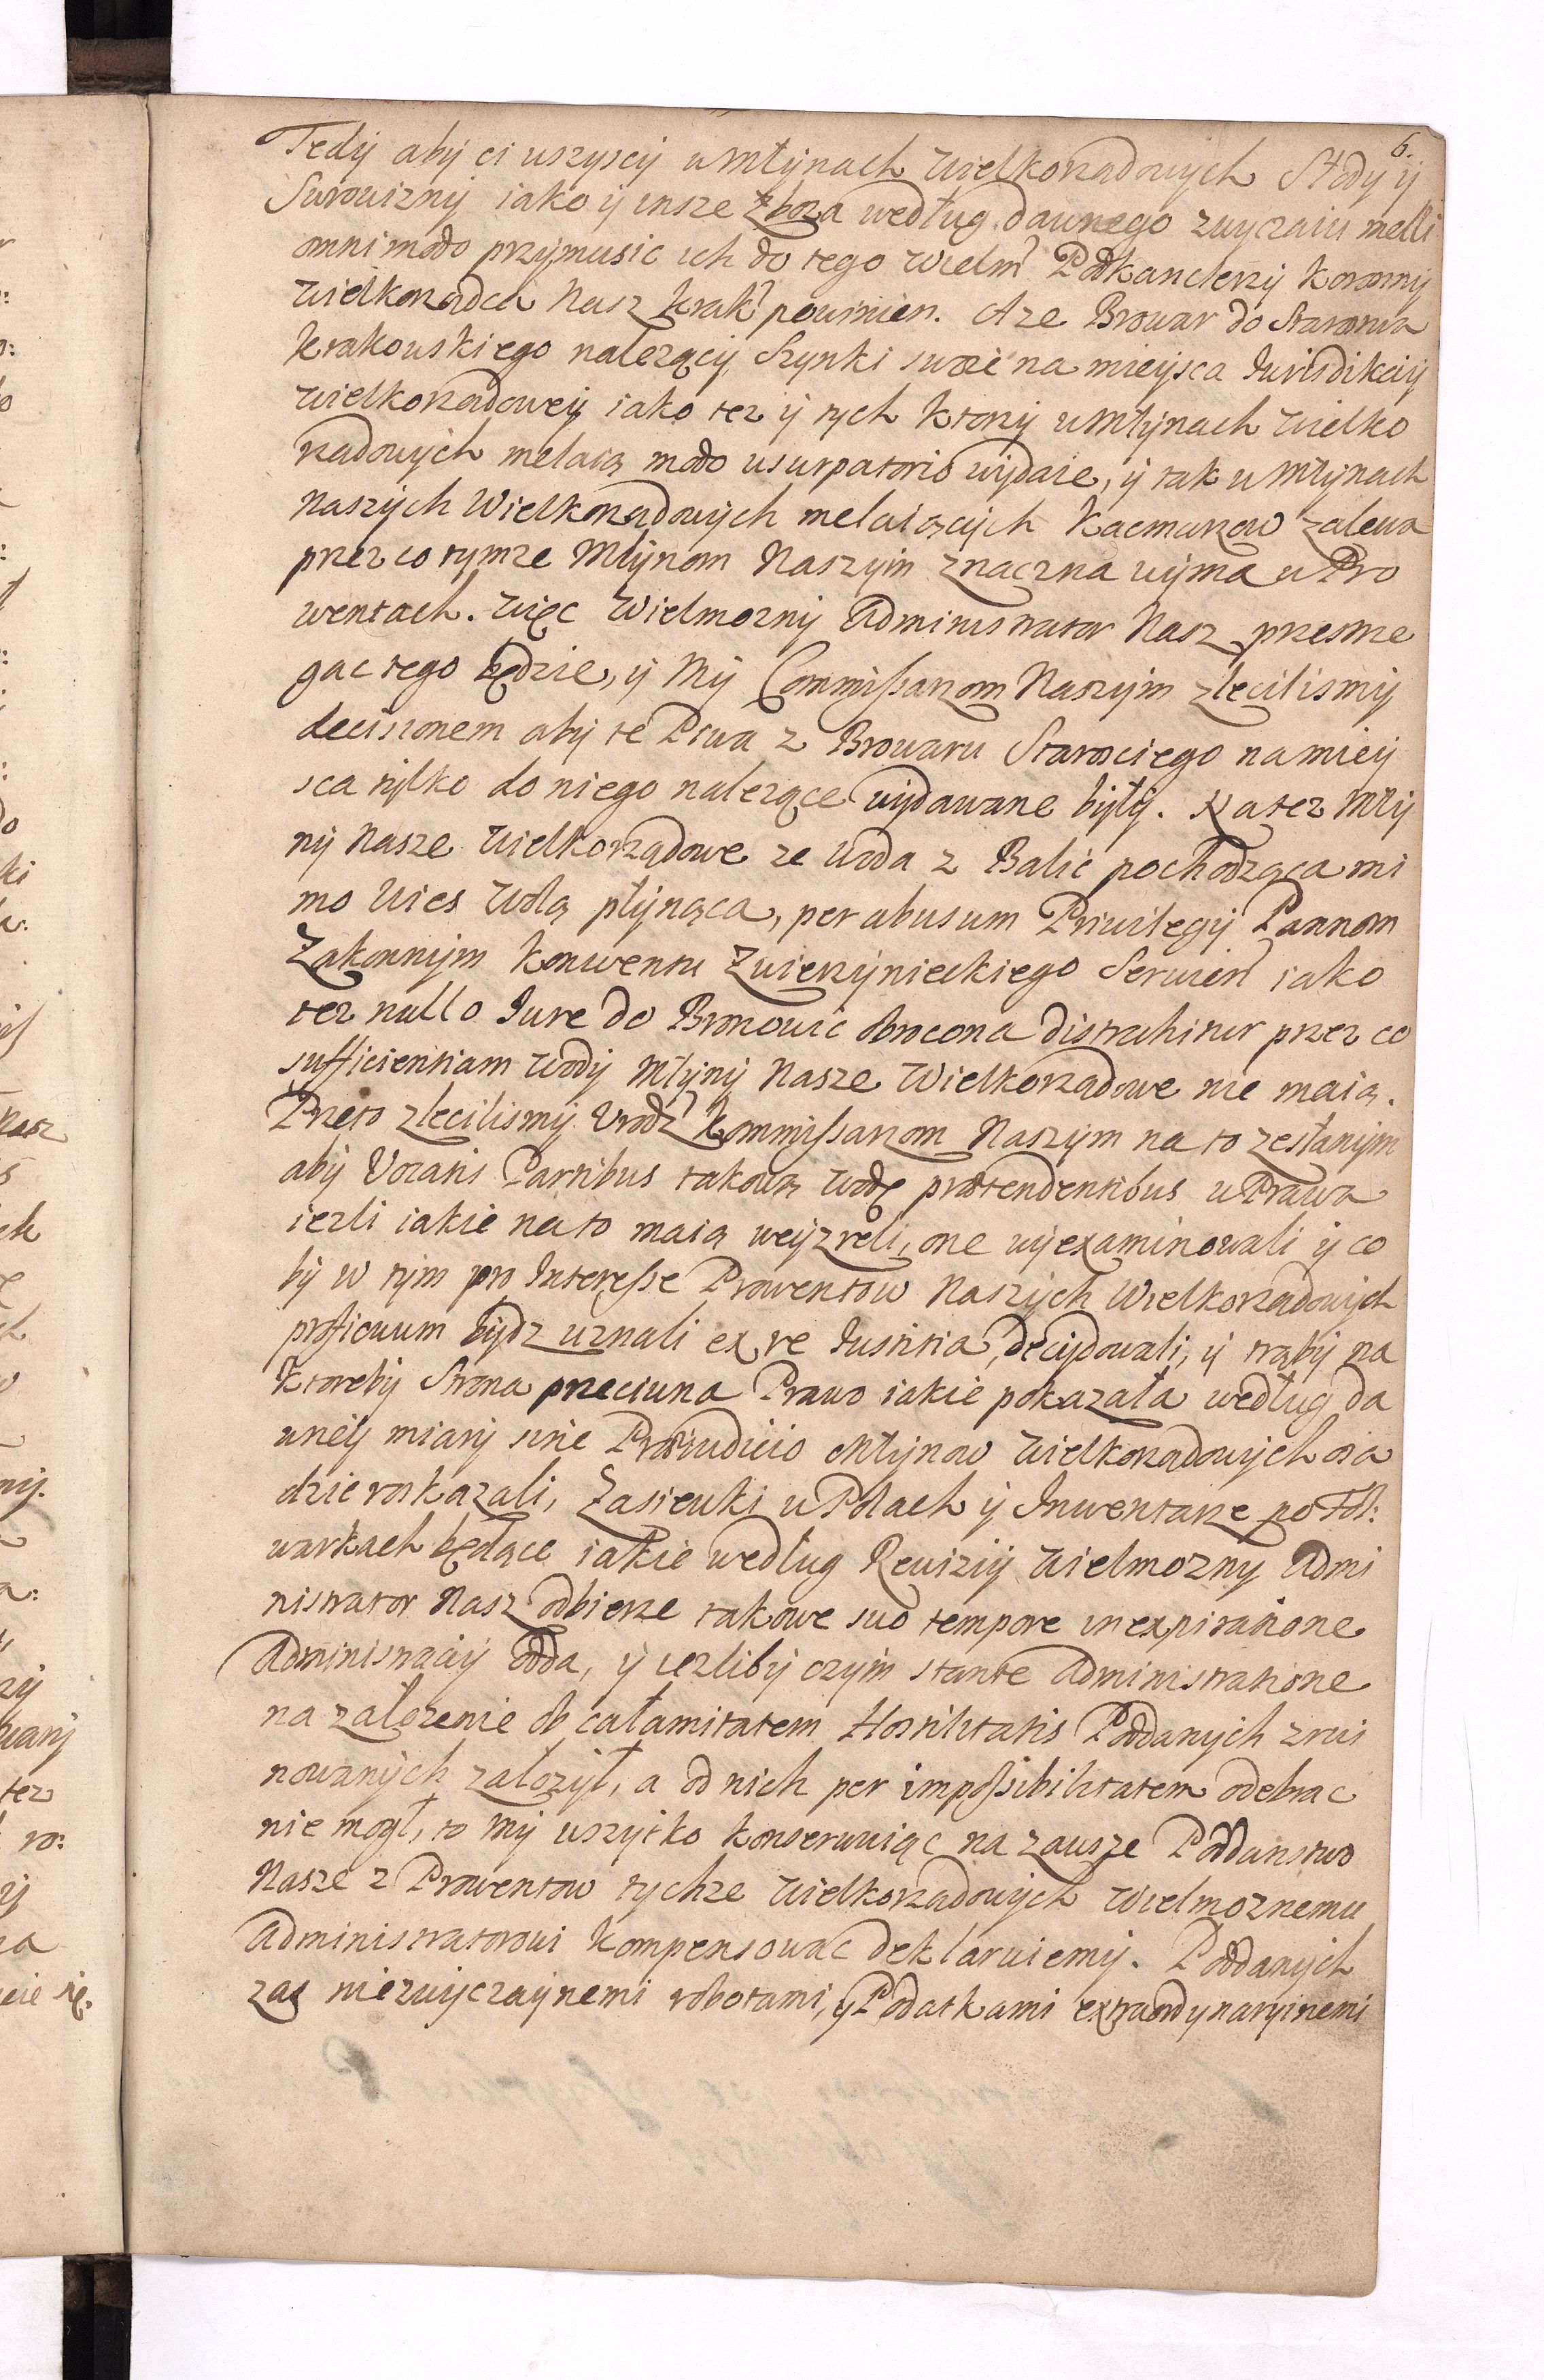 6.
Tedÿ abÿ ci wszyscÿ w Młÿnach Wielkorządowÿch Słodÿ ÿ
Surowiznÿ iako ÿ insze Zboza według dawnego zwyczaiu melli
omnimodo przÿmusic ich do tego Wielmᵒ Podkanclerzÿ Koronnÿ
Wielkorządca Nasz Krakᵒ powinien. A ze Browar do Starostwa
Krakowskiego nalezącÿ Szynki swoie na mieÿsca Jurisdikcÿi
Wielkorządoweÿ iako tez ÿ tych ktorzÿ w Młÿnach Wielko
rządowÿch melaią modo usurpatorio wÿdaie, ÿ tak w Młÿnach
Naszÿch Wielkorządowÿch melaiącÿch Kaczmarzow zalewa
przez co tymze Młÿnom Naszÿm znaczna uÿma w Pro
wentach. Więc Wielmoznÿ Administrator Nasz przestrze
gac tego będzie, ÿ Mÿ Commissarzom Naszÿm zlecilismÿ
decisionem abÿ te Piwa z Browaru Starosciego na mieÿ
sca tÿlko do niego nalezące wÿdawane bÿłÿ. Na tez Młÿ
nÿ Nasze Wielkorządowe ze Woda z Balic pochodząca mi
mo Wies Wolą płÿnąca, per abusum Privilegÿ Pannom
Zakonnÿm Konwentu Zwierzÿnieckiego Serwienᵗ iako
tez nullo Jure do Bronowic obrocona distrahitur przez co
sufficientiam Wodÿ Młÿnÿ Nasze Wielkorządowe nie maią.
Przeto zlecilismÿ Urodzᵒ Kommissarzom Naszÿm na to zesłanÿm
abÿ Vocatis Partibus takową Wodę prætendentibus w Prawa
iezli iakie na to maią weÿzreli, one wÿexaminowali ÿ co
bÿ w tÿm pro Interesse Prowentow Naszÿch Wielkorządowÿch
proficuum bÿdz uznali ex re Justitia, decÿdowali, ÿ trąbÿ na
ktorebÿ Strona przeciwna Prawo iakie pokazała według da
wneÿ miarÿ sine Præiudicio Młÿnow Wielkorządowÿch osa
dzic roskazali, Zasiewki w Polach ÿ Inwentarze po Fol:
warkach będące iakie według Rewiziÿ Wielmoznÿ Admi
nistrator Nasz odbierze takowe suo tempore in expiratione
Administraciÿ odda, ÿ iezlibÿ czÿm stante Administratione
na załozenie ob calamitatem Hostilitatis Poddanÿch zrui
nowanÿch załozÿł, a od nich per impossibilitatem odebrac
nie mogł, to Mÿ wszÿtko konserwuiąc na zawsze Poddanstwo
Nasze z Prowentow tychze Wielkorządowÿch Wielmoznemu
Administratorowi kompensowac deklaruiemÿ. Poddanÿch
zas niezwÿczaÿnemi robotami, ÿ Podatkami extraordynarÿinemi